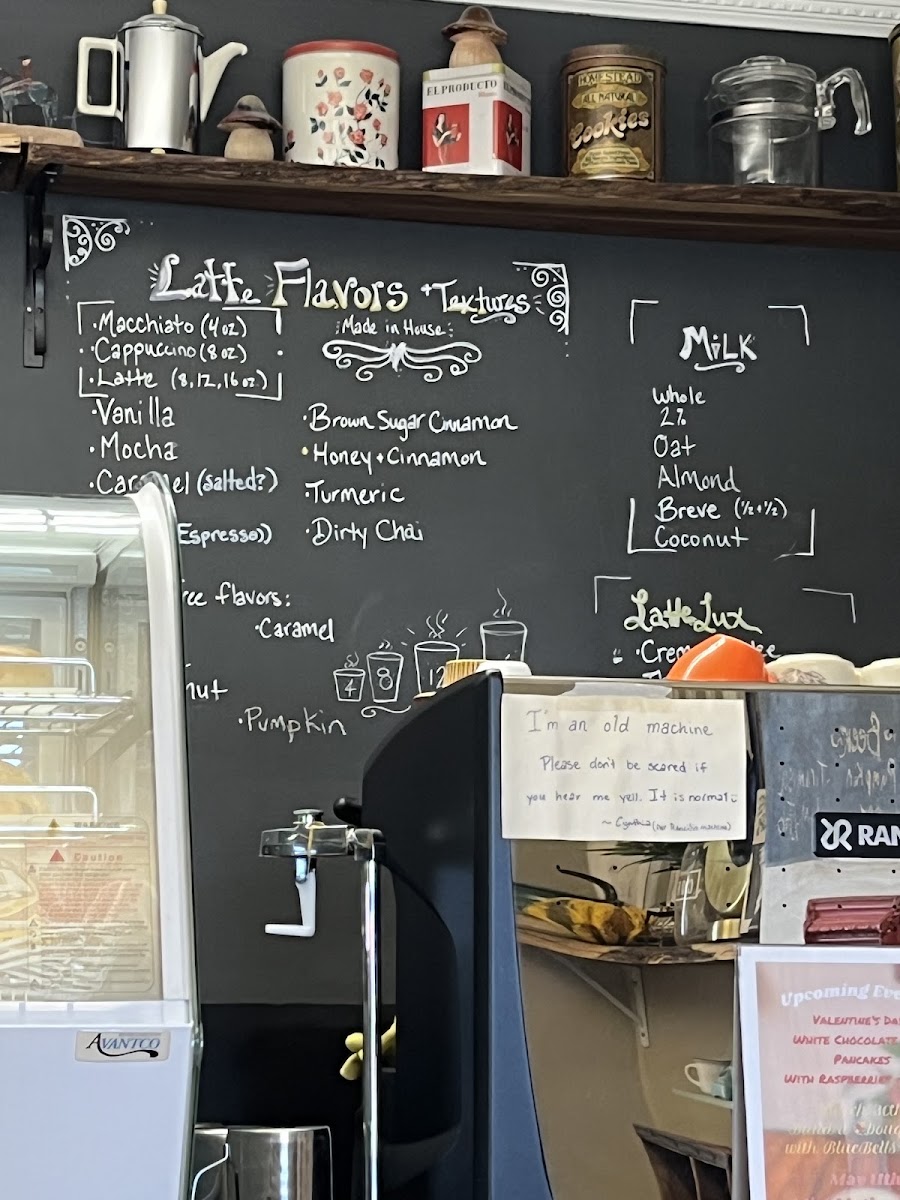 EL PRODUCTO
HOMESTEAD
ALL NATURAL
Cookies
Latte Flavors + Textures
Made in House
·Macchiato (4 oz)
·Cappuccino (8 oz)
·Latte (8, 12, 16 oz)
·Vanilla
·Mocha
·Caramel (salted?)
Espresso))
ree flavors:
·Caramel
nut
·Pumpkin
·Brown Sugar Cinnamon
·Honey + Cinnamon
·Turmeric
·Dirty Chai
4 8 12
Milk
Whole
2%
Oat
Almond
Breve (½+½)
Coconut
Latte Lux
I'm an old machine
Please don't be scared if
you hear me yell. It is normal
~ Cynthia (our Rancilio machine)
RAN
Caution
AVANTCO
Upcoming Eve
VALENTINE'S DA
WHITE CHOCOLATE
PANCAKES
WITH RASPBERRIES
with BlueBells